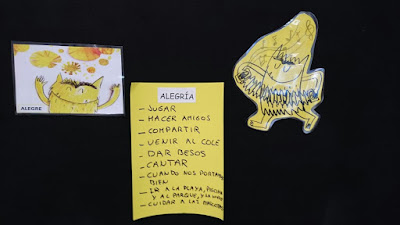 ALEGRE
ALEGRÍA
– JUGAR
– HACER AMIGOS
– COMPARTIR
– VENIR AL COLE
– DAR BESOS
– CANTAR
– CUANDO NOS PORTAMOS
BIEN
– IR A LA PLAYA, PISCINA
Y AL PARQUE, Y LA
– CUIDAR A LAS